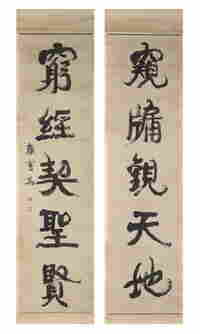 窺牖觀天地
窮經契聖賢